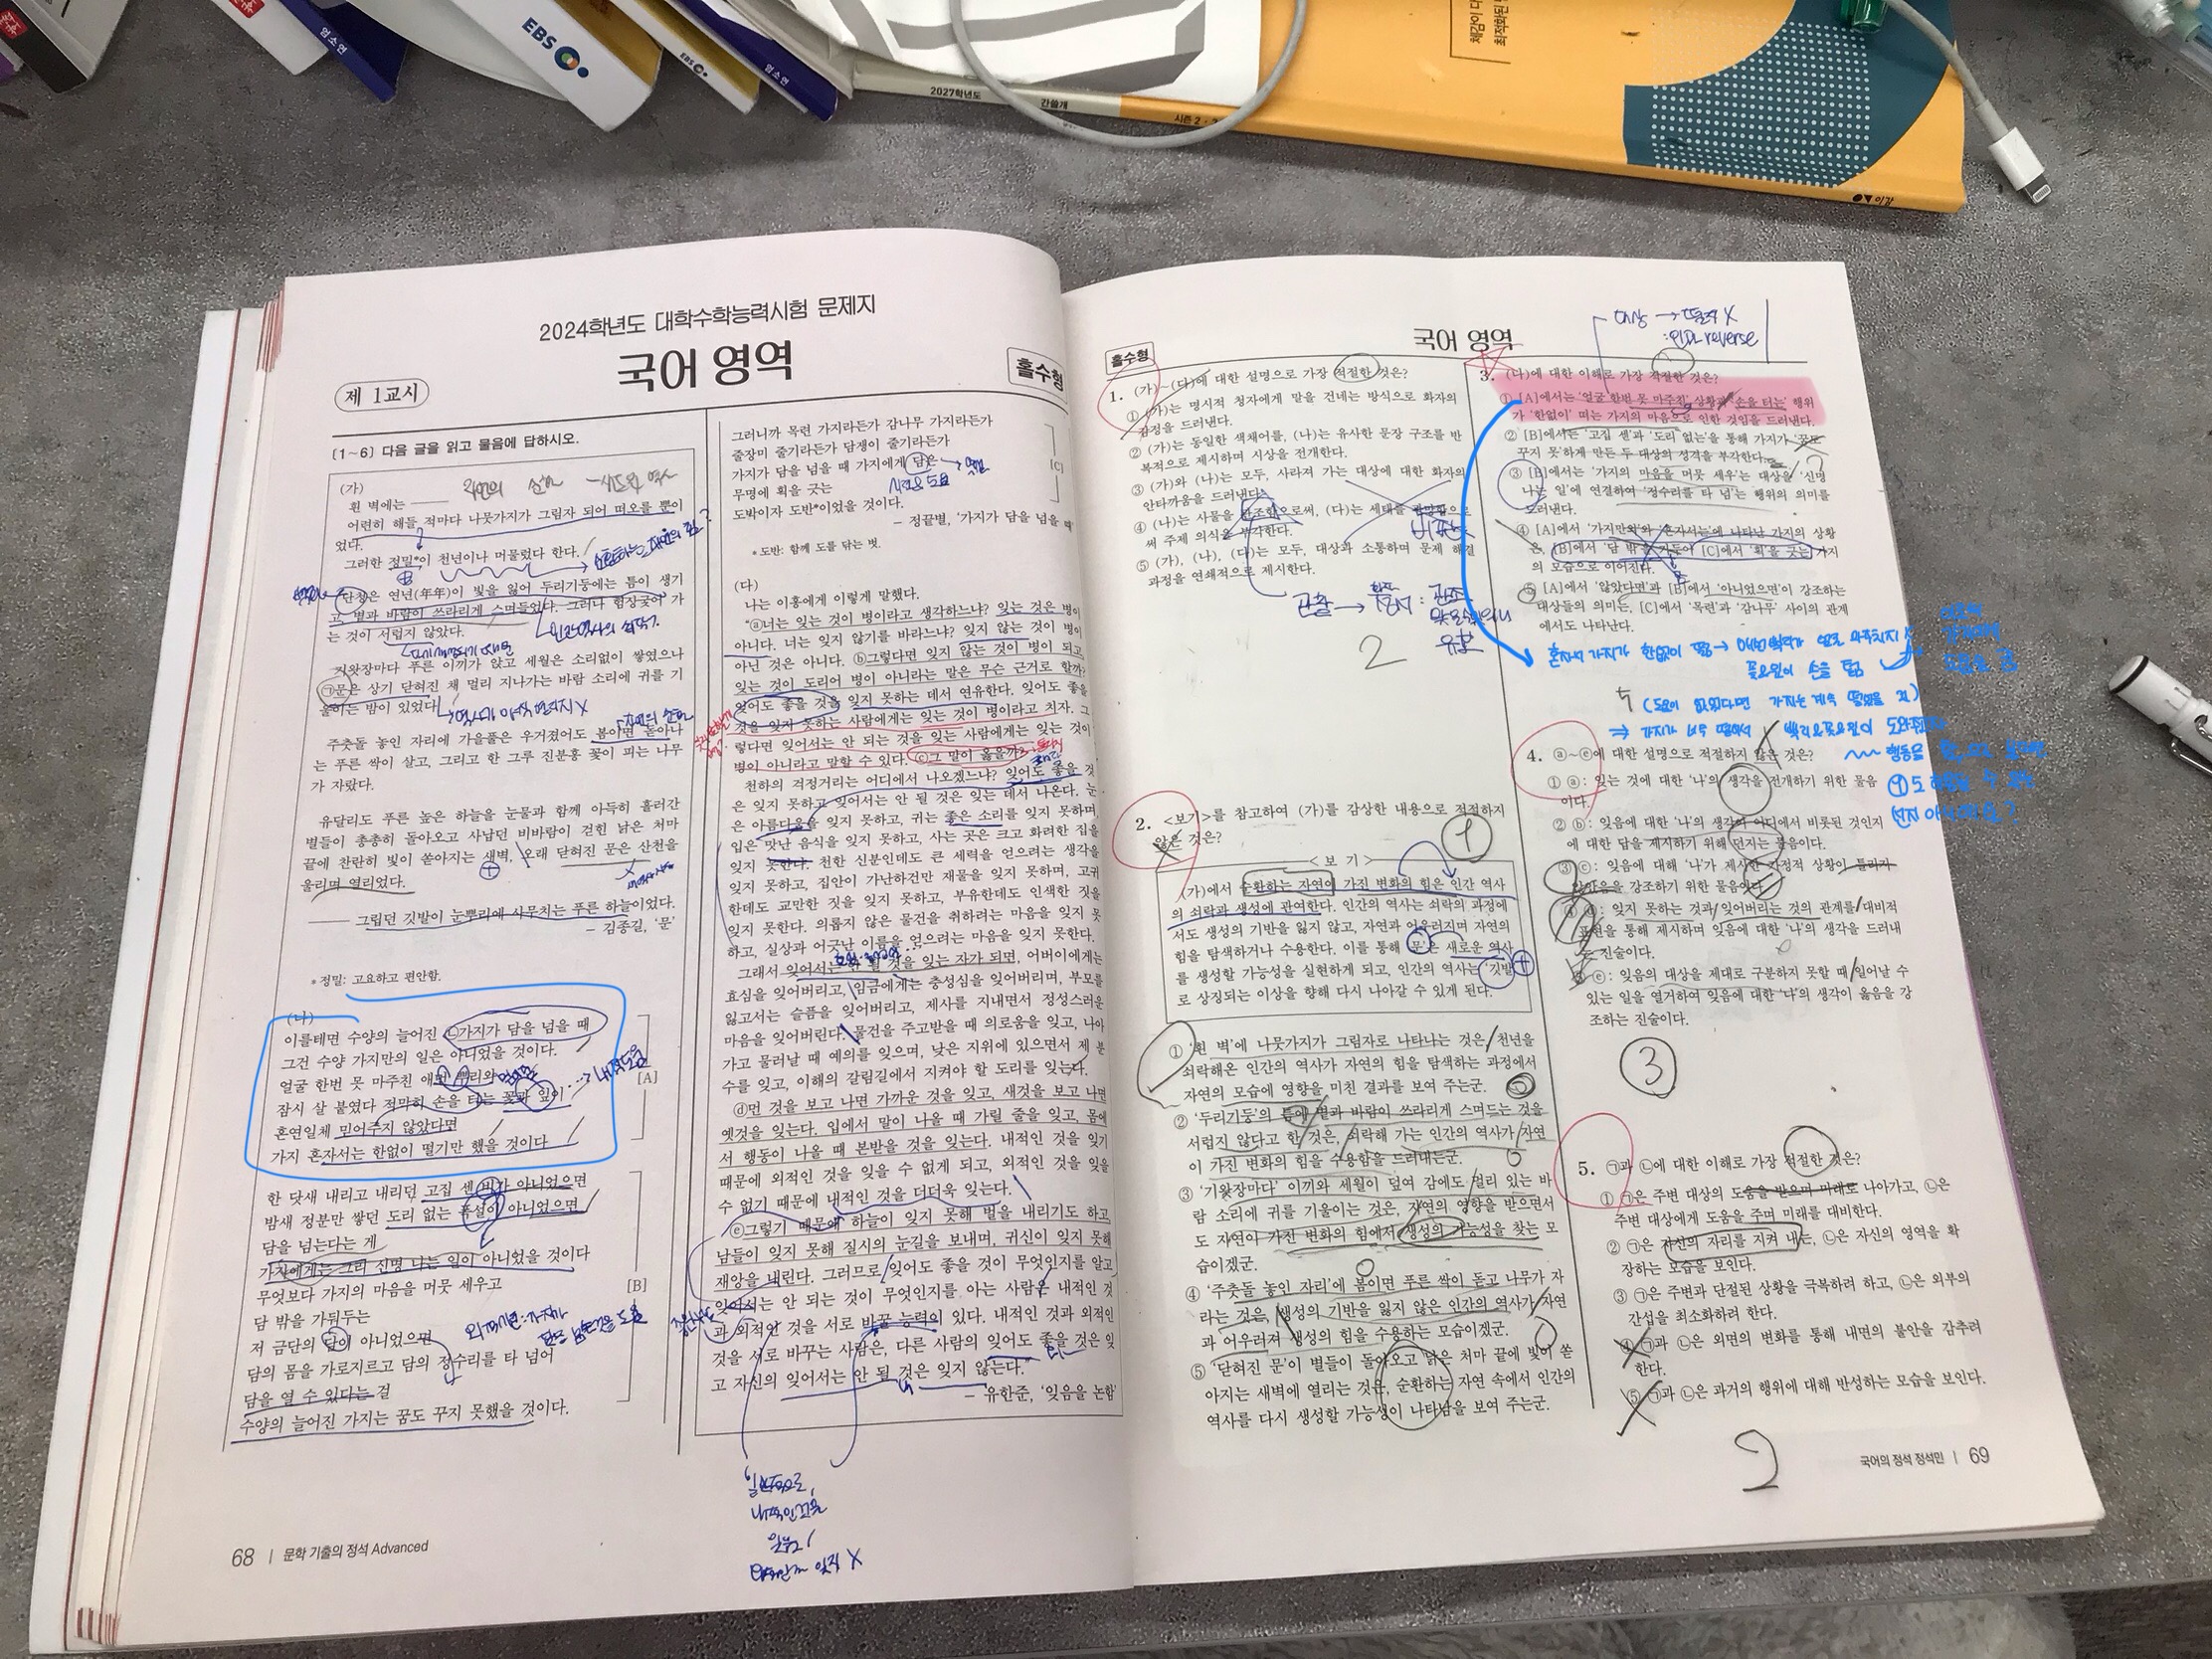 EBS
EBS
엄소연
엄소연
2027학년도
간쓸개
이감
2024학년도 대학수학능력시험 문제지
국어 영역
홀수형
제 1교시
[1~6] 다음 글을 읽고 물음에 답하시오.
(가)
흰 벽에는 ──
어련히 해들 적마다 나뭇가지가 그림자 되어 떠오를 뿐이
었다.
그러한 정밀*이 천년이나 머물렀다 한다.
단청은 연년(年年)이 빛을 잃어 두리기둥에는 틈이 생기
고, 볕과 바람이 쓰라리게 스며들었다. 그러나 험상궂어 가
는 것이 서럽지 않았다.
기왓장마다 푸른 이끼가 앉고 세월은 소리없이 쌓였으나
㉠문은 상기 닫혀진 채 멀리 지나가는 바람 소리에 귀를 기
울이는 밤이 있었다.
주춧돌 놓인 자리에 가을풀은 우거졌어도 봄이면 돋아나
는 푸른 싹이 살고, 그리고 한 그루 진분홍 꽃이 피는 나무
가 자랐다.
유달리도 푸른 높은 하늘을 눈물과 함께 아득히 흘러간
별들이 총총히 돌아오고 사납던 비바람이 걷힌 낡은 처마
끝에 찬란히 빛이 쏟아지는 새벽, 오래 닫혀진 문은 산천을
울리며 열리었다.
── 그립던 깃발이 눈뿌리에 사무치는 푸른 하늘이었다.
- 김종길, ‘문’
*정밀: 고요하고 편안함.
(나)
이를테면 수양의 늘어진 ㉡가지가 담을 넘을 때
그건 수양 가지만의 일은 아니었을 것이다
얼굴 한번 못 마주친 애먼 뿌리와
잠시 살 붙였다 적막히 손을 터는 꽃과 잎이
혼연일체 믿어주지 않았다면
가지 혼자서는 한없이 떨기만 했을 것이다
[A]
한 닷새 내리고 내리던 고집 센 비가 아니었으면
밤새 정분만 쌓던 도리 없는 폭설이 아니었으면
담을 넘는다는 게
가지에게는 그리 신명 나는 일이 아니었을 것이다
무엇보다 가지의 마음을 머뭇 세우고
담 밖을 가둬두는
저 금단의 담이 아니었으면
담의 몸을 가로지르고 담의 정수리를 타 넘어
담을 열 수 있다는 걸
수양의 늘어진 가지는 꿈도 꾸지 못했을 것이다.
[B]
68 | 문학 기출의 정석 Advanced
그러니까 목련 가지라든가 감나무 가지라든가
줄장미 줄기라든가 담쟁이 줄기라든가
가지가 담을 넘을 때 가지에게 담은
무명에 획을 긋는
도박이자 도반*이었을 것이다.
[C]
- 정끝별, ‘가지가 담을 넘을 때
*도반: 함께 도를 닦는 벗.
(다)
나는 이홍에게 이렇게 말했다.
“ⓐ너는 잊는 것이 병이라고 생각하느냐? 잊는 것은 병이
아니다. 너는 잊지 않기를 바라느냐? 잊지 않는 것이 병이
아닌 것은 아니다. ⓑ그렇다면 잊지 않는 것이 병이 되고,
잊는 것이 도리어 병이 아니라는 말은 무슨 근거로 할까?
잊어도 좋을 것을 잊지 못하는 데서 연유한다. 잊어도 좋을
것을 잊지 못하는 사람에게는 잊는 것이 병이라고 치자. 그
렇다면 잊어서는 안 되는 것을 잊는 사람에게는 잊는 것이
병이 아니라고 말할 수 있다. ⓒ그 말이 옳을까?
천하의 걱정거리는 어디에서 나오겠느냐? 잊어도 좋을 것
은 잊지 못하고 잊어서는 안 될 것은 잊는 데서 나온다. 눈
은 아름다움을 잊지 못하고, 귀는 좋은 소리를 잊지 못하며,
입은 맛난 음식을 잊지 못하고, 사는 곳은 크고 화려한 집을
잊지 못한다. 천한 신분인데도 큰 세력을 얻으려는 생각을
잊지 못하고, 집안이 가난하건만 재물을 잊지 못하며, 고귀
한데도 교만한 짓을 잊지 못하고, 부유한데도 인색한 짓을
잊지 못한다. 의롭지 않은 물건을 취하려는 마음을 잊지 못
하고, 실상과 어긋난 이름을 얻으려는 마음을 잊지 못한다.
그래서 잊어서는 안 될 것을 잊는 자가 되면, 어버이에게는
효심을 잊어버리고, 임금에게는 충성심을 잊어버리며, 부모를
잃고서는 슬픔을 잊어버리고, 제사를 지내면서 정성스러운
마음을 잊어버린다. 물건을 주고받을 때 의로움을 잊고, 나아
가고 물러날 때 예의를 잊으며, 낮은 지위에 있으면서 제 분
수를 잊고, 이해의 갈림길에서 지켜야 할 도리를 잊는다.
ⓓ먼 것을 보고 나면 가까운 것을 잊고, 새것을 보고 나면
옛것을 잊는다. 입에서 말이 나올 때 가릴 줄을 잊고, 몸에
서 행동이 나올 때 본받을 것을 잊는다. 내적인 것을 잊기
때문에 외적인 것을 잊을 수 없게 되고, 외적인 것을 잊을
수 없기 때문에 내적인 것을 더더욱 잊는다.
ⓔ그렇기 때문에 하늘이 잊지 못해 벌을 내리기도 하고,
남들이 잊지 못해 질시의 눈길을 보내며, 귀신이 잊지 못해
재앙을 내린다. 그러므로 잊어도 좋을 것이 무엇인지를 알고
잊어서는 안 되는 것이 무엇인지를 아는 사람은 내적인 것
과 외적인 것을 서로 바꿀 능력이 있다. 내적인 것과 외적인
것을 서로 바꾸는 사람은, 다른 사람의 잊어도 좋을 것은 잊
고 자신의 잊어서는 안 될 것은 잊지 않는다.”
- 유한준, ‘잊음을 논함’
홀수형
국어 영역
1. (가)~(다)에 대한 설명으로 가장 적절한 것은?
① (가)는 명시적 청자에게 말을 건네는 방식으로 화자의
감정을 드러낸다.
② (가)는 동일한 색채어를, (나)는 유사한 문장 구조를 반
복적으로 제시하며 시상을 전개한다.
③ (가)와 (나)는 모두, 사라져 가는 대상에 대한 화자의
안타까움을 드러낸다.
④ (나)는 사물을 관조함으로써, (다)는 세태를 관망함으로
써 주제 의식을 부각한다.
⑤ (가), (나), (다)는 모두, 대상과 소통하며 문제 해결
과정을 연쇄적으로 제시한다.
2
2. <보기>를 참고하여 (가)를 감상한 내용으로 적절하지
않은 것은?
1
<보 기>
(가)에서 순환하는 자연이 가진 변화의 힘은 인간 역사
의 쇠락과 생성에 관여한다. 인간의 역사는 쇠락의 과정에
서도 생성의 기반을 잃지 않고, 자연과 어우러지며 자연의
힘을 탐색하거나 수용한다. 이를 통해 ‘문’은 새로운 역사
를 생성할 가능성을 실현하게 되고, 인간의 역사는 ‘깃발’
로 상징되는 이상을 향해 다시 나아갈 수 있게 된다.
① ‘흰 벽’에 나뭇가지가 그림자로 나타나는 것은, 천년을
쇠락해온 인간의 역사가 자연의 힘을 탐색하는 과정에서
자연의 모습에 영향을 미친 결과를 보여 주는군.
② ‘두리기둥’의 틈에 볕과 바람이 쓰라리게 스며드는 것을
서럽지 않다고 한 것은, 쇠락해 가는 인간의 역사가 자연
이 가진 변화의 힘을 수용함을 드러내는군.
③ ‘기왓장마다’ 이끼와 세월이 덮여 감에도 멀리 있는 바
람 소리에 귀를 기울이는 것은, 자연의 영향을 받으면서
도 자연이 가진 변화의 힘에서 생성의 가능성을 찾는 모
습이겠군.
④ ‘주춧돌 놓인 자리’에 봄이면 푸른 싹이 돋고 나무가 자
라는 것은, 생성의 기반을 잃지 않은 인간의 역사가 자연
과 어우러져 생성의 힘을 수용하는 모습이겠군.
⑤ ‘닫혀진 문’이 별들이 돌아오고 낡은 처마 끝에 빛이 쏟
아지는 새벽에 열리는 것은, 순환하는 자연 속에서 인간의
역사를 다시 생성할 가능성이 나타남을 보여 주는군.
3. (나)에 대한 이해로 가장 적절한 것은?
① [A]에서는 ‘얼굴 한번 못 마주친’ 상황과 ‘손을 터는’ 행위
가 ‘한없이’ 떠는 가지의 마음으로 인한 것임을 드러낸다.
② [B]에서는 ‘고집 센’과 ‘도리 없는’을 통해 가지가 ‘꿈도
꾸지 못’하게 만든 두 대상의 성격을 부각한다.
③ [B]에서는 ‘가지의 마음을 머뭇 세우’는 대상을 ‘신명
나는 일’에 연결하여 ‘정수리를 타 넘’는 행위의 의미를
드러낸다.
④ [A]에서 ‘가지만의’와 ‘혼자서는’에 나타난 가지의 상황
은, [B]에서 ‘담 밖’을 가둬 [C]에서 ‘획’을 긋는 가지
의 모습으로 이어진다.
⑤ [A]에서 ‘않았다면’과 [B]에서 ‘아니었으면’이 강조하는
대상들의 의미는, [C]에서 ‘목련’과 ‘감나무’ 사이의 관계
에서도 나타난다.
4. ⓐ~ⓔ에 대한 설명으로 적절하지 않은 것은?
① ⓐ: 잊는 것에 대한 ‘나’의 생각을 전개하기 위한 물음
이다.
② ⓑ: 잊음에 대한 ‘나’의 생각이 어디에서 비롯된 것인지
에 대한 답을 제시하기 위해 던지는 물음이다.
③ ⓒ: 잊음에 대해 ‘나’가 제시한 가정적 상황이 틀리지
않았음을 강조하기 위한 물음이다.
④ ⓓ: 잊지 못하는 것과 잊어버리는 것의 관계를 대비적
표현을 통해 제시하며 잊음에 대한 ‘나’의 생각을 드러내
는 진술이다.
⑤ ⓔ: 잊음의 대상을 제대로 구분하지 못할 때 일어날 수
있는 일을 열거하여 잊음에 대한 ‘나’의 생각이 옳음을 강
조하는 진술이다.
3
5. ㉠과 ㉡에 대한 이해로 가장 적절한 것은?
① ㉠은 주변 대상의 도움을 받으며 미래로 나아가고, ㉡은
주변 대상에게 도움을 주며 미래를 대비한다.
② ㉠은 자신의 자리를 지켜 내는, ㉡은 자신의 영역을 확
장하는 모습을 보인다.
③ ㉠은 주변과 단절된 상황을 극복하려 하고, ㉡은 외부의
간섭을 최소화하려 한다.
④ ㉠과 ㉡은 외면의 변화를 통해 내면의 불안을 감추려
한다.
⑤ ㉠과 ㉡은 과거의 행위에 대해 반성하는 모습을 보인다.
2
국어의 정석 정석민 | 69